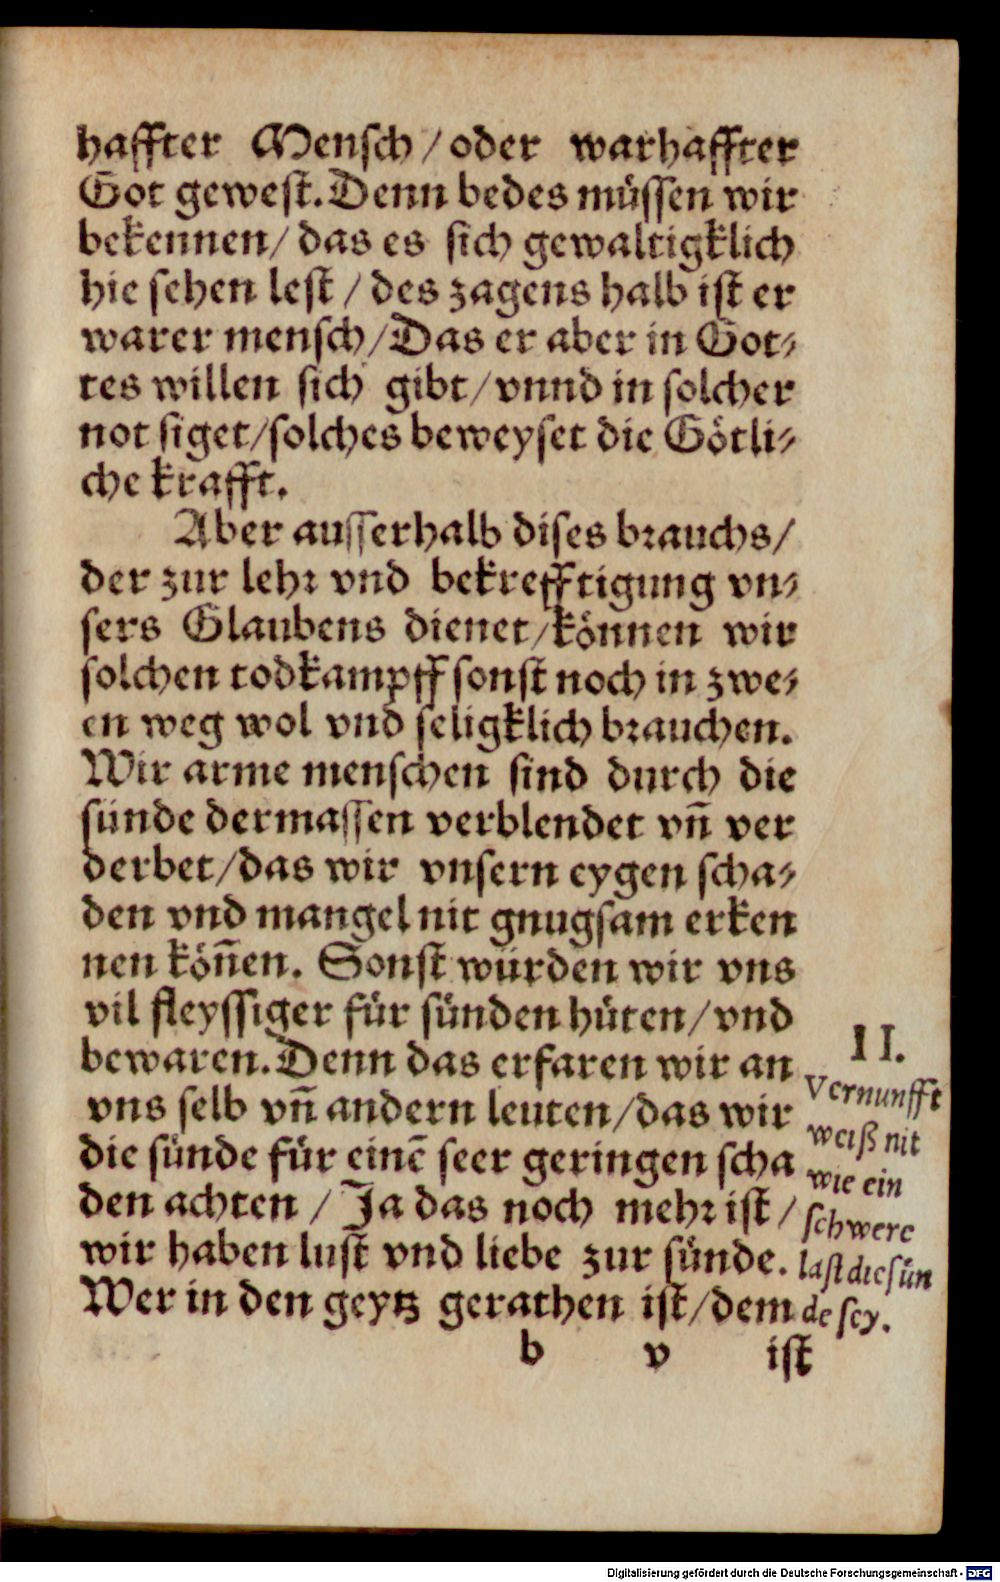 haffter Mensch / oder warhaffter
Got gewest. Denn bedes müssen wir
bekennen / das es sich gewaltigklich
hie sehen lest / des zagens halb ist er
warer mensch / Das er aber in Got⸗
tes willen sich gibt / vnnd in solcher
not siget / solches beweyset die Götli⸗
che krafft.
Aber ausserhalb dises brauchs /
der zur lehr vnd bekrefftigung vn⸗
sers Glaubens dienet / können wir
solchen todkampff sonst noch in zwe⸗
en weg wol vnd seligklich brauchen.
Wir arme menschen sind durch die
sünde dermassen verblendet vn̄ ver
derbet / das wir vnsern eygen scha⸗
den vnd mangel nit gnugsam erken
nen kön̄en. Sonst würden wir vns
vil fleyssiger für sünden hüten / vnd
bewaren. Denn das erfaren wir an
vns selb vn̄ andern leuten / das wir
die sünde für einē seer geringen scha
den achten / Ja das noch mehr ist /
wir haben lust vnd liebe zur sünde.
Wer in den geytz gerathen ist / dem
b v ist
II.
Vernunfft
weiß nit
wie ein
schwere
last die sün
de sey.
Digitalisierung gefördert durch die Deutsche Forschungsgemeinschaft - DFG